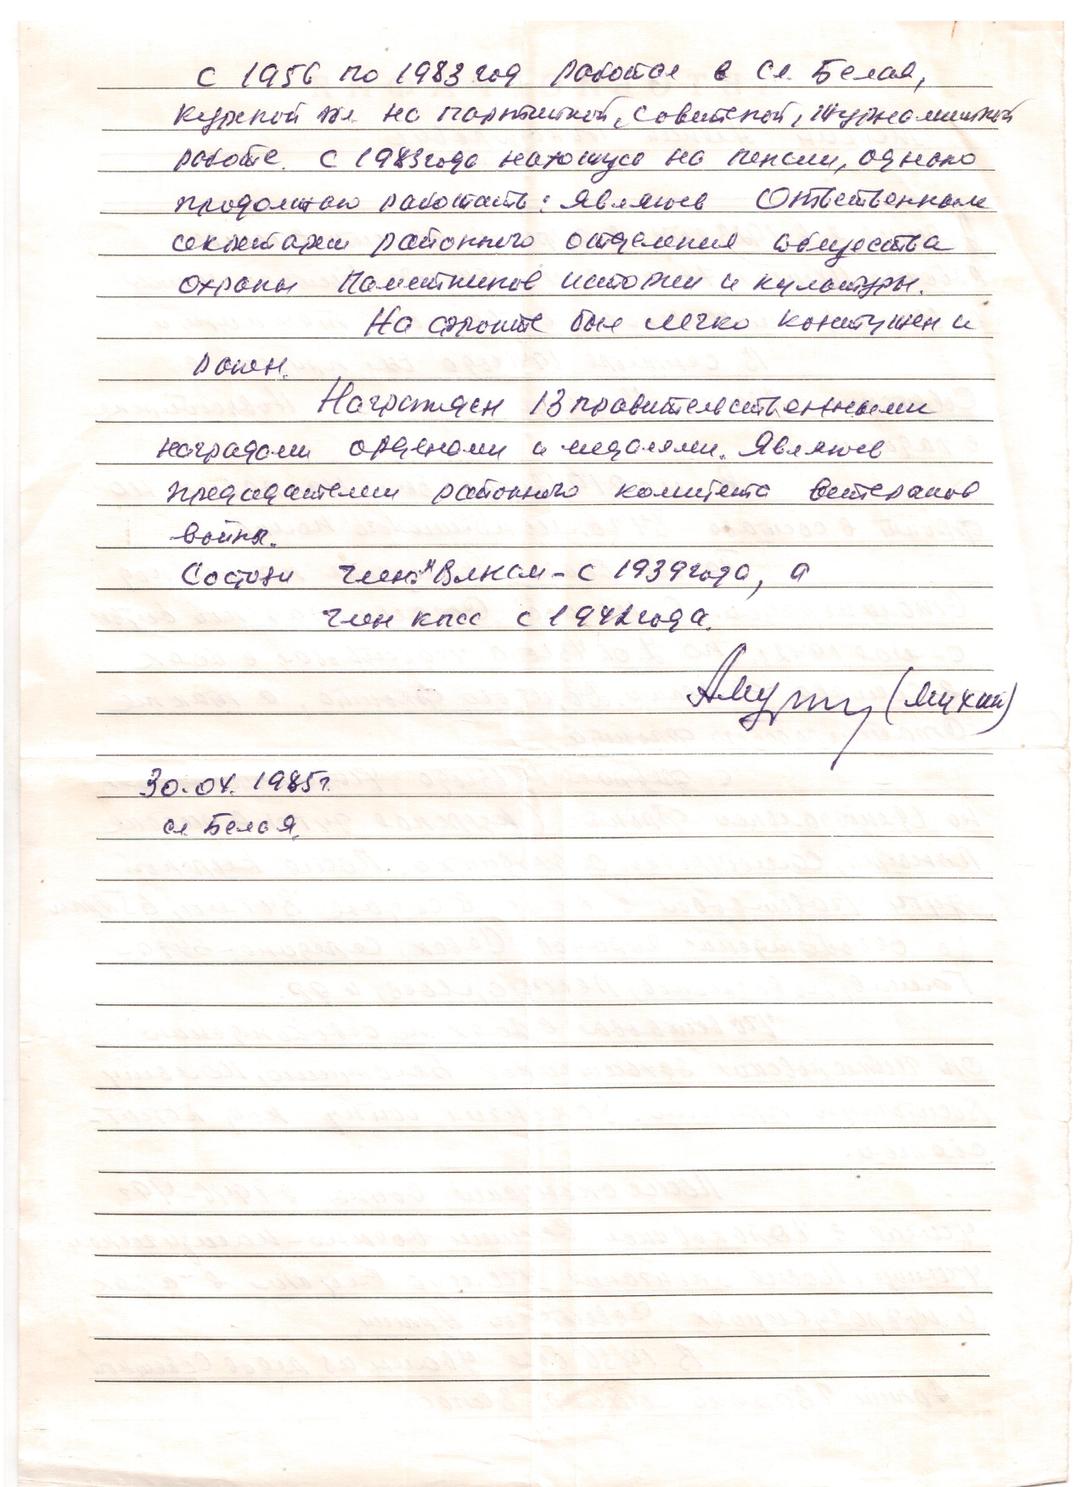 С 1956 по 1983 год работал в Сл. Белая,
Курской обл. на партийной, советской, журналистской
работе. С 1983 года нахожусь на пенсии, однако
продолжаю работать: являюсь Ответственным
секретарем районного отделения общества
охраны памятников истории и культуры.
На фронте был легко контужен и
ранен.
Награжден 13 правительственными
наградами орденами и медалями. Являюсь
председателем районного комитета ветеранов
войны.
Состою член ВЛКСМ - с 1939 года, а
член КПСС с 1942 года.
(Мухин)
30.04. 1985 г.
сл. Белая.